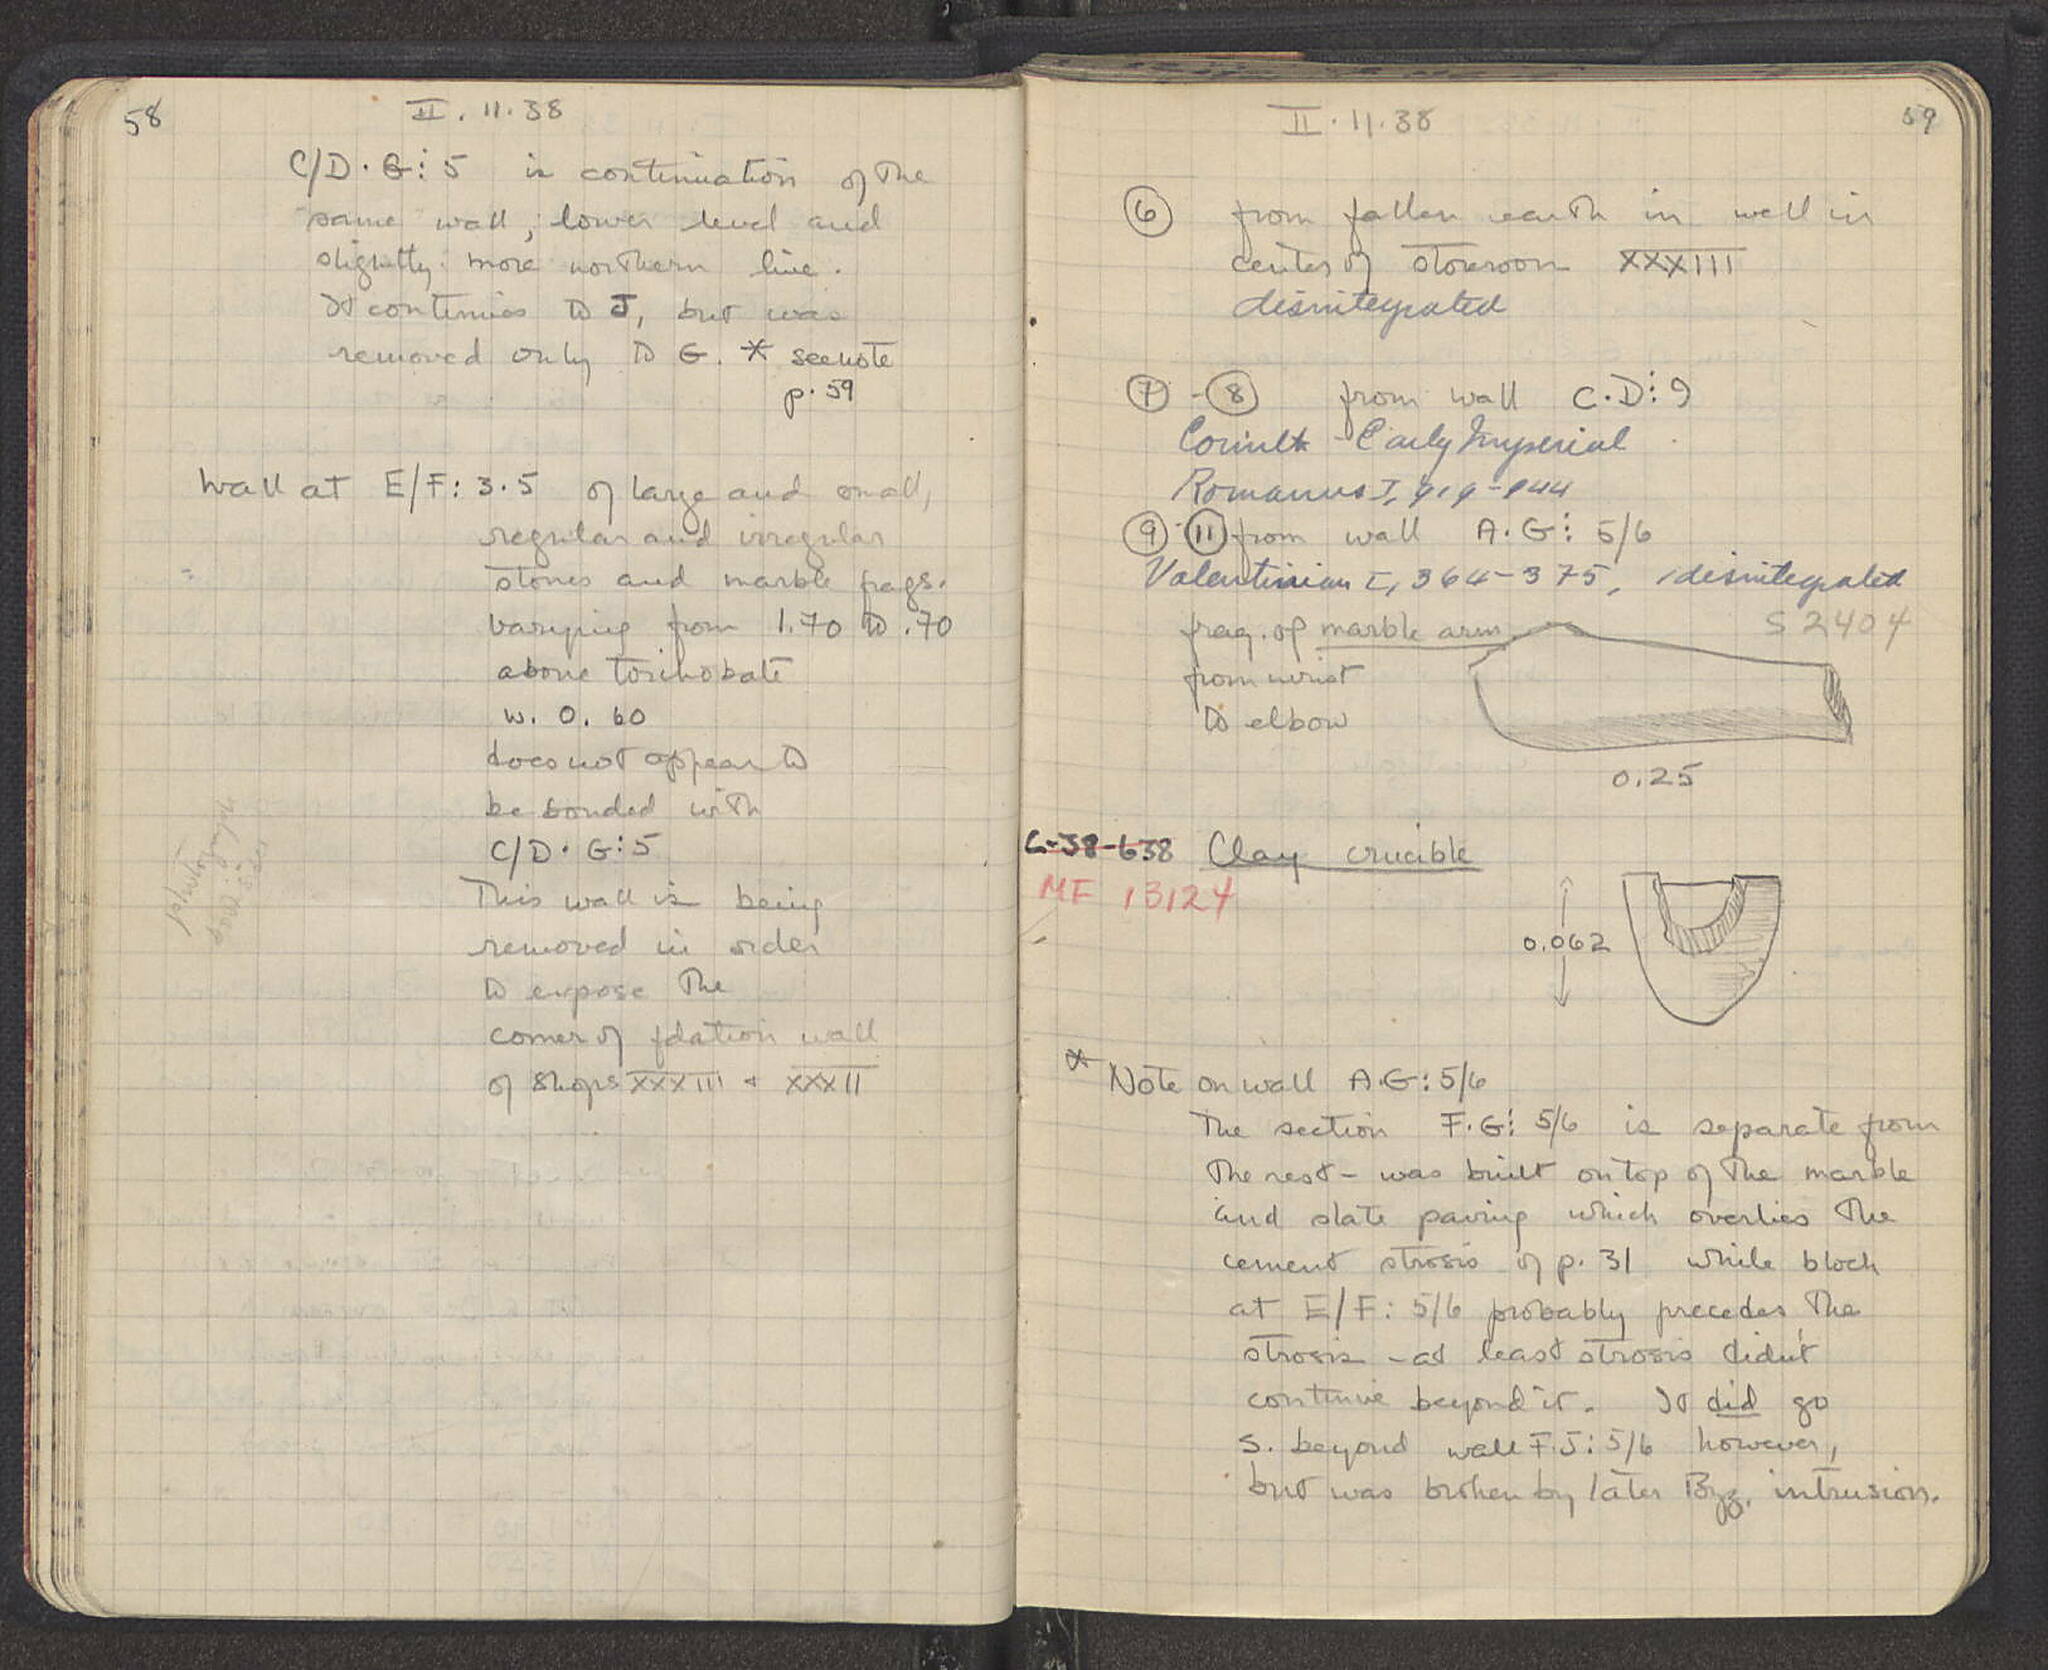 58
II. 11.38
C/D · G: 5 is continuation of the
same wall, lower level and
slightly more northern line.
It continues to J, but was
removed only to G. * see note
p. 59
Wall at E/F: 3.5 of large and small,
regular and irregular
stones and marble frags.
varying from 1.70 to .70
above toichobate
w. 0.60
does not appear to
be bonded with
C/D · G: 5
This wall is being
removed in order
to expose the
corner of fdation wall
of Shops XXXIII + XXXII
II. 11.38
59
⑥ from fallen earth in well in
center of storeroom XXXIII
disintegrated
⑦ - ⑧ from wall C.D: 9
Corinth - Early Imperial
Romanus I, 919-944
⑨ - ⑪ from wall A.G: 5/6
Valentinian I, 364-375, disintegrated
frag. of marble arm S 2404
from wrist
to elbow
0.25
C-38-638 Clay crucible
MF 13124
0.062
* Note on wall A.G: 5/6
The section F.G: 5/6 is separate from
the rest - was built on top of the marble
and slate paving which overlies the
cement strosis of p. 31 while block
at E/F: 5/6 probably precedes the
strosis - at least strosis didn't
continue beyond it. It did go
S. beyond wall F.J: 5/6 however,
but was broken by later Byz. intrusion.